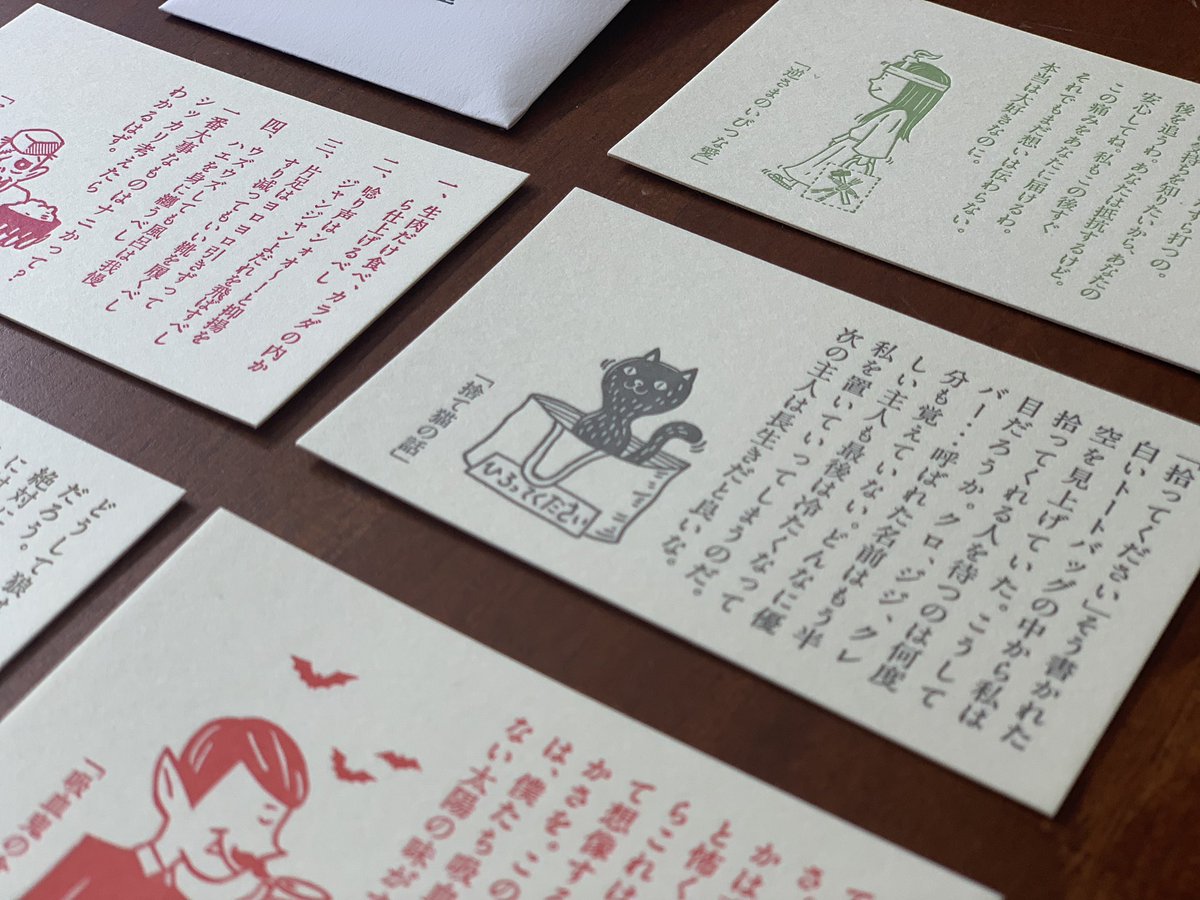 一、生肉だけ食べ、カラダの内か
ら仕上げるべし
二、唸り声はオォーと抑揚を
ジャンジャンよだれを飛ばすべし
三、片足はヨロヨロ引きずって
すり減ってもいい靴を履くべし
四、ウズウズしても風呂は我慢
ハエを身に纏うべし
一番大事なものはナニかって？
シッカリ考えたら
わかるはず。
ら打つの。
持ちを知りたいから、あなたの
後を追うわ。あなたは抵抗するけど。
安心してね。私もこの後すぐ
この痛みをあなたに届けるわ。
それでもまだ想いは伝わらない。
本当は大好きなのに。
さまのいびつな愛」
「拾ってください」そう書かれた
白いトートバッグの中から私は
空を見上げていた。こうして
拾ってくれる人を待つのは何度
目だろうか。クロ、ジジ、クレ
バー…呼ばれた名前はもう半
分も覚えていない。どんなに優
しい主人も最後は冷たくなって
私を置いていってしまうのだ。
次の主人は長生きだと良いな。
ひろってください
「捨て猫の話」
どうして狼
だろう。
絶対に
には
て
さ
かは
と怖く
らこれは
て想像する
かさを。この
は、僕たち吸血
ない太陽の味が
「吸血鬼の